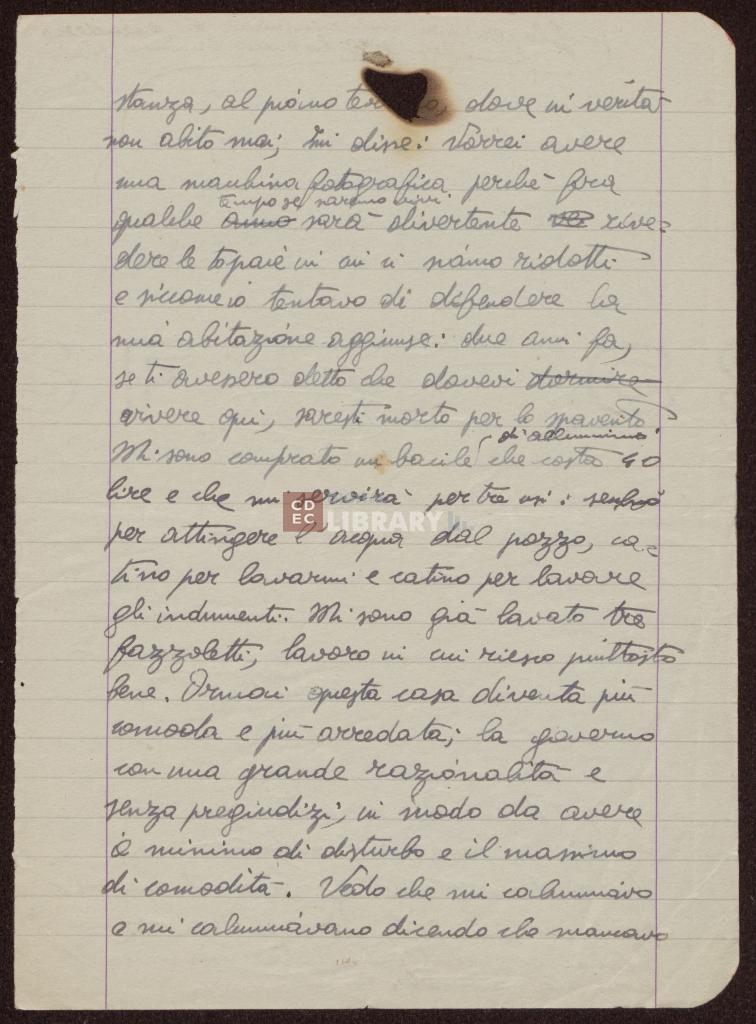 stanza, al primo dove in verità
non abito mai; mi disse: Vorrei avere
una macchina fotografica perchè fra
tempo se saremo vivi
qualche anno sarà divertente rive=
dere le topaie in cui ci siamo ridotti
e siccome io tentavo di difendere la
mia abitazione aggiunse: due anni fa,
se ti avessero detto che dovevi dormire
vivere qui, saresti morto per lo spavento
di alluminio
Mi sono comprato un bacile che costa 40
lire e che mi servirà per tre usi: secchio
per attingere l'acqua dal pozzo, ca=
tino per lavarmi e catino per lavare
gli indumenti. Mi sono già lavato tre
fazzoletti, lavoro in cui riesco piuttosto
bene. Ormai questa casa diventa più
comoda e più arredata; la governo
con una grande razionalità e
senza pregiudizi, in modo da avere
il minimo di disturbo e il massimo
di comodità. Vedo che mi calunniavo
e mi calunniavano dicendo che mancavo
CDEC LIBRARY.it